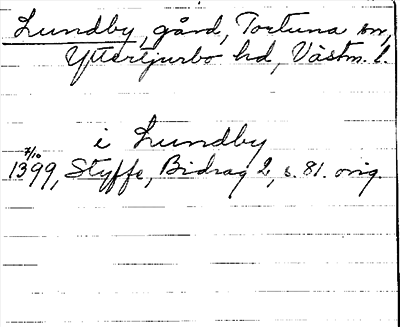 Lundby, gård, Tortuna sn,
Yttertjurbo hd, Västm. l.
i Lundby
7/10
1399, Styffe, Bidrag 2, s. 81. orig.